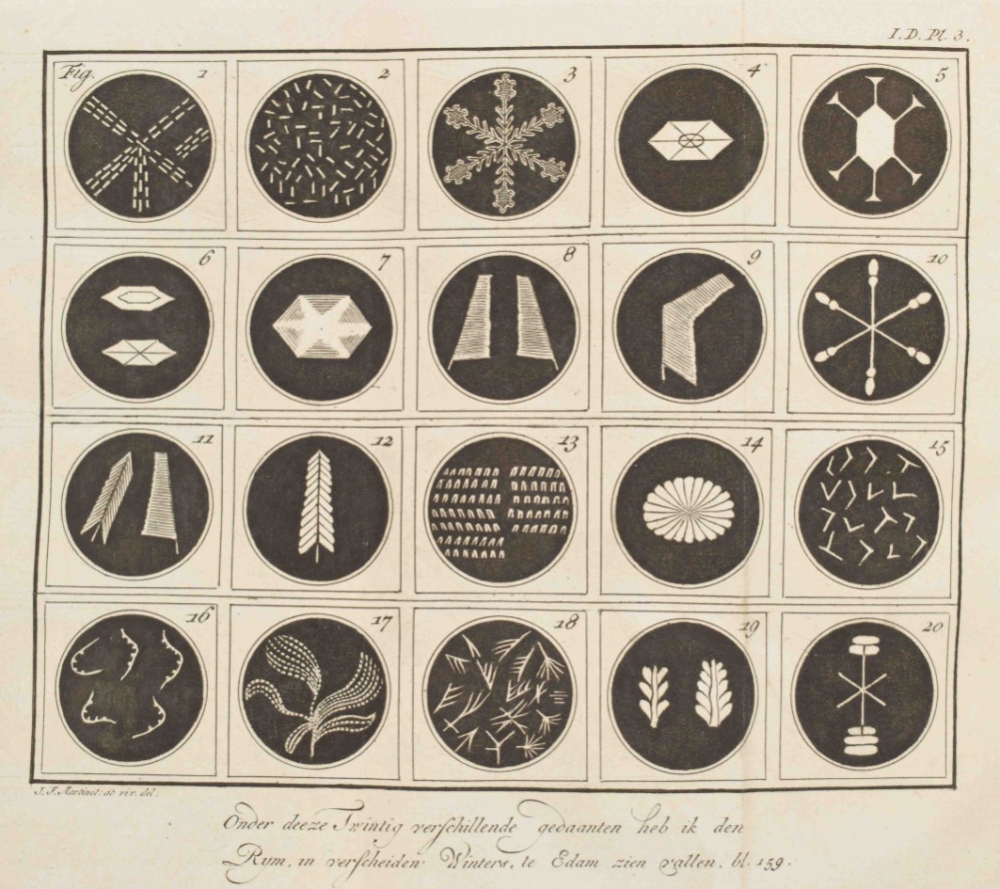 I. D. Pl. 3.
Fig. 1
2
3
4
5
6
7
8
9
10
11
12
13
14
15
16
17
18
19
20
J. F. Martinet ad viv. del.
Onder deeze Twintig verschillende gedaanten heb ik den
Rym, in verscheiden Winters, te Edam zien vallen. bl. 159.